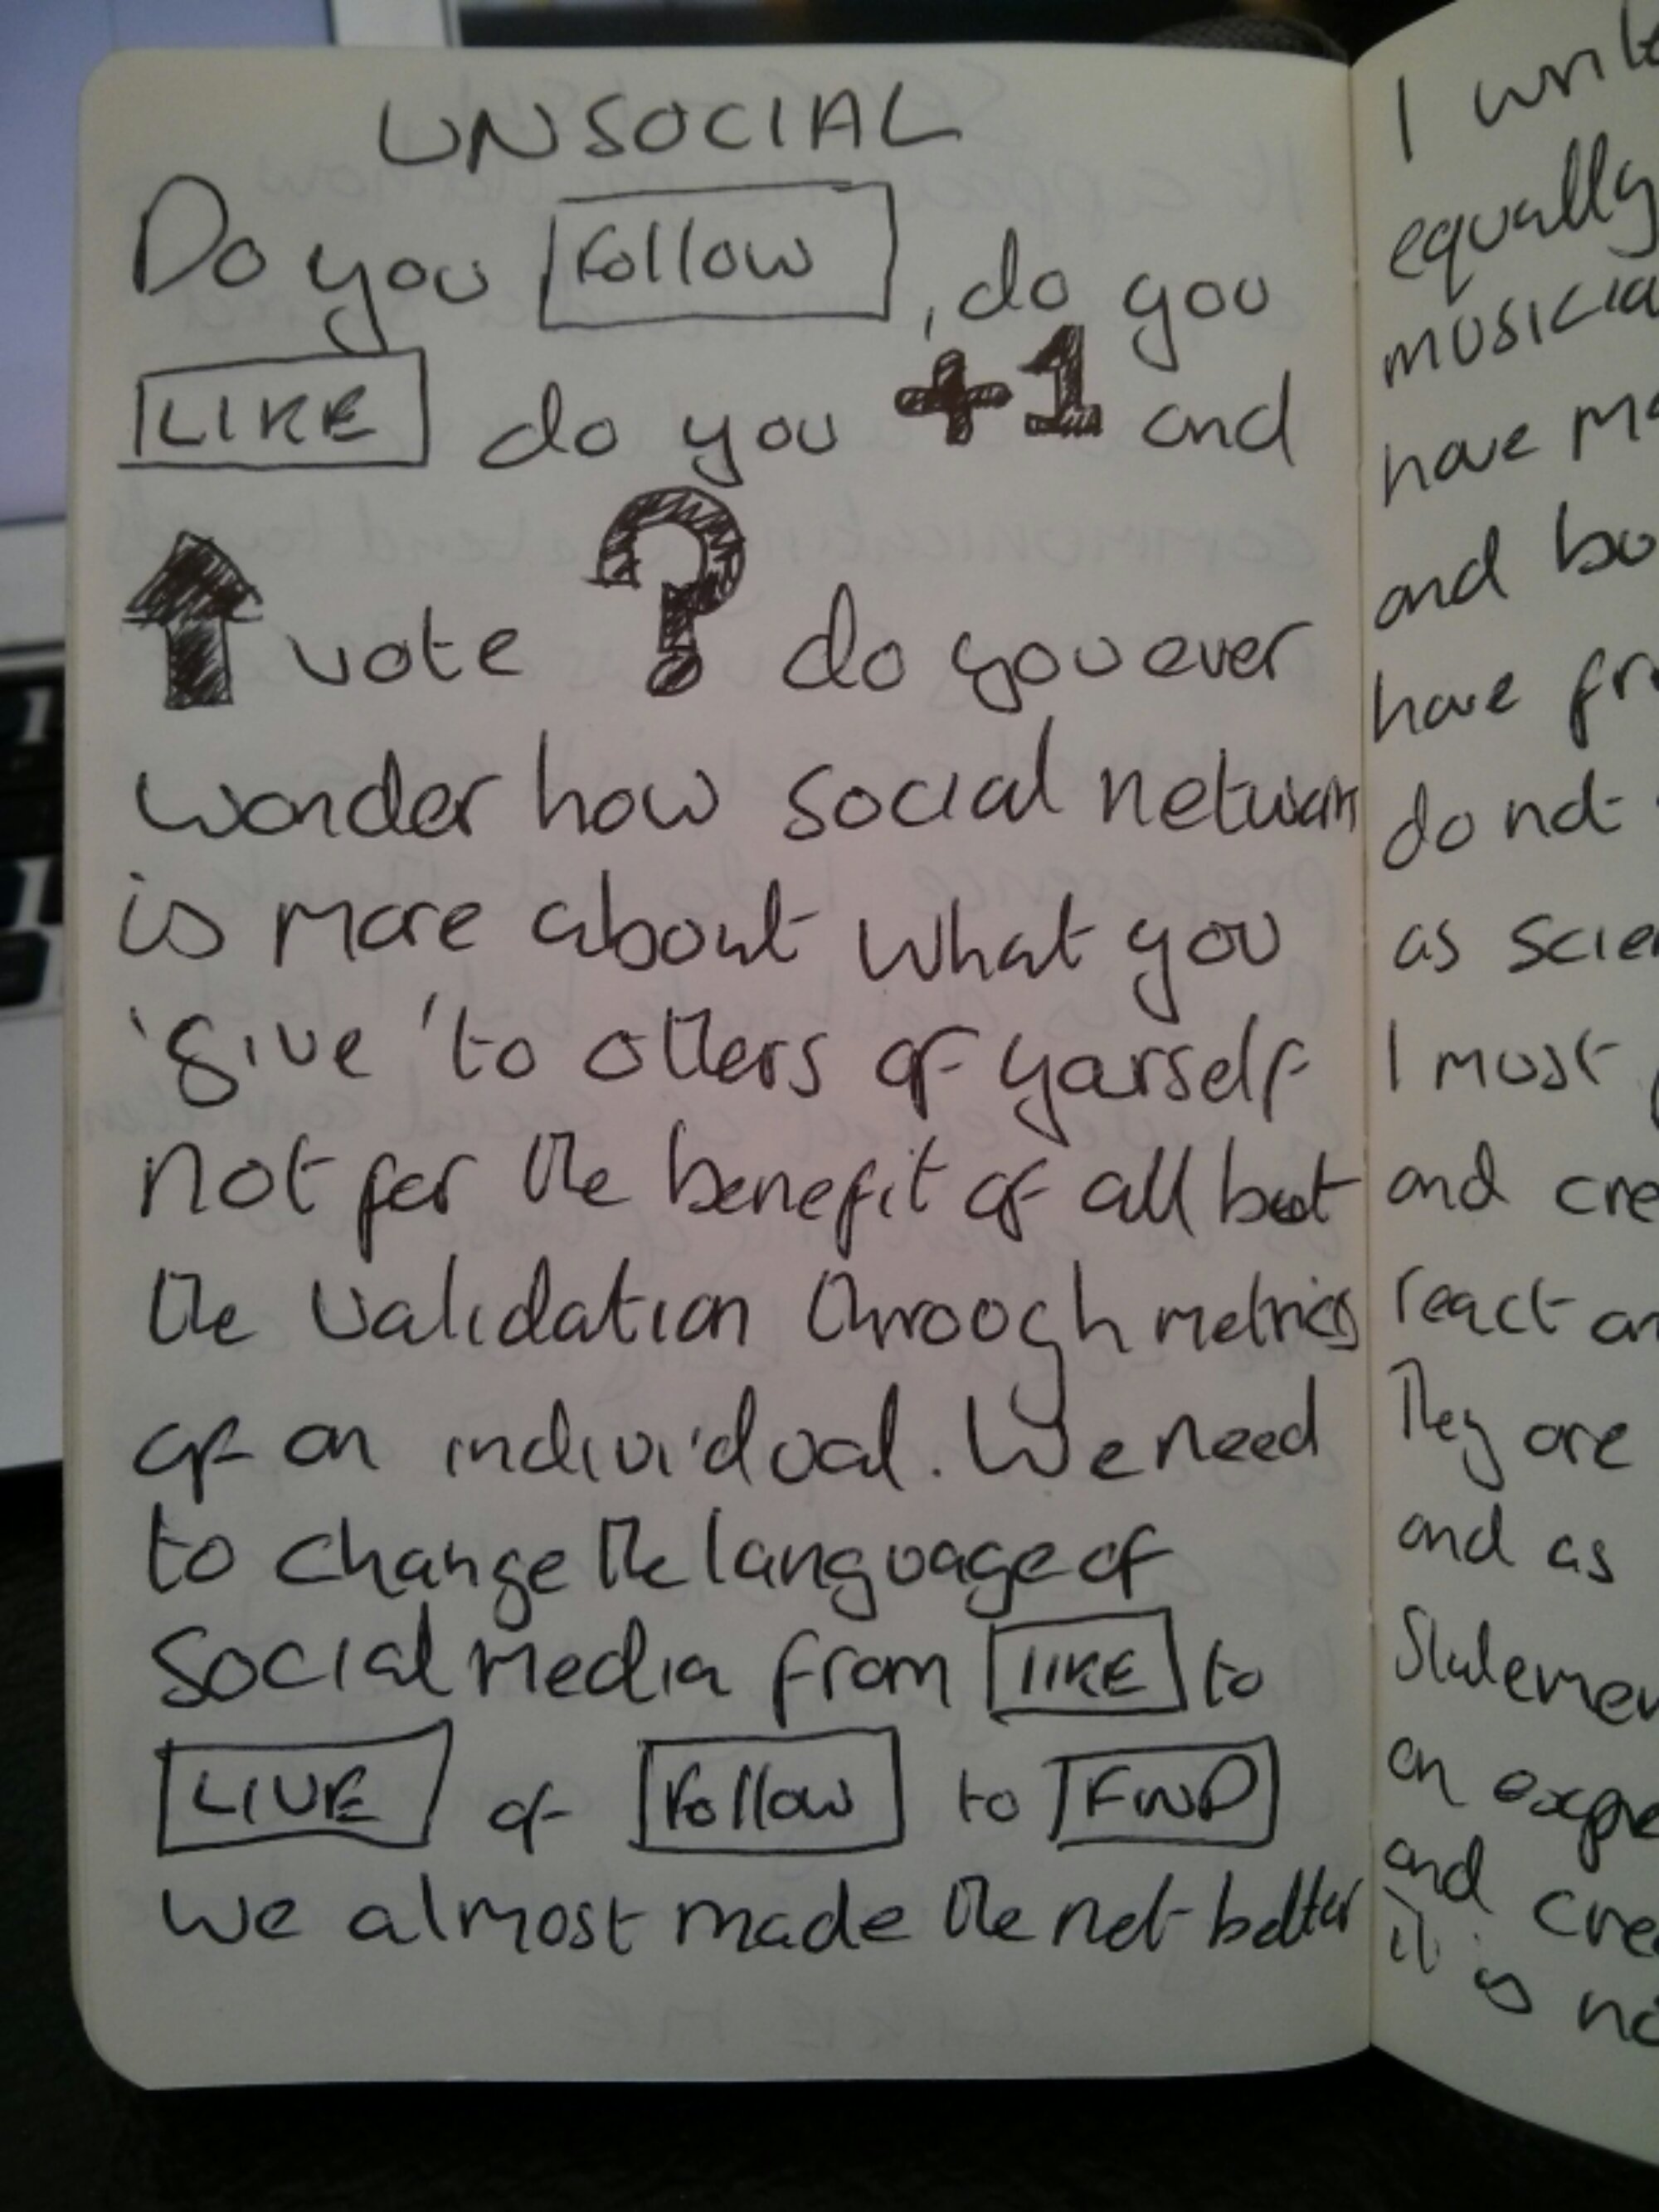 UNSOCIAL
Do you Follow , do you
LIKE do you +1 and
↑ vote ? do you ever
wonder how social network
is more about what you
'give' to others of yourself
not for the benefit of all but
the validation through metrics
of an individual. We need
to change the language of
social media from LIKE to
LIVE of Follow to FIND
we almost made the net better
I write
equally
musicia
have ma
and bo
have fr
do not
as scie
I must
and cre
react an
They are
and as
Statemen
an expre
and cre
it is no